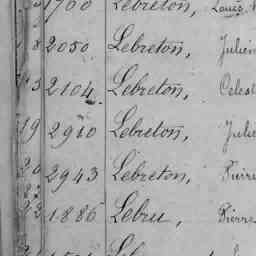 1700 Lebreton, Louis
8 2050 Lebreton, Julien
3 2104. Lebreton, Celest
19 2910 Lebreton, Julie
20 2943 Lebreton, Pierre
22 1886 Lebru, Pierre